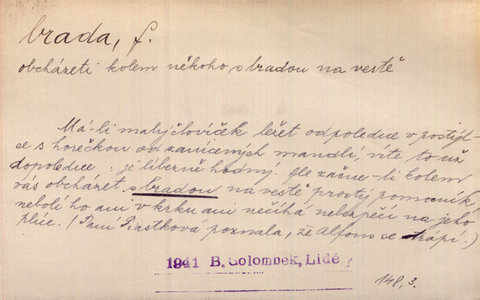 brada, f.
obcházeti kolem někoho s bradou na vestě
Má-li malý človíček ležet odpoledne v postýl-
ce s horečkou od zanícených mandlí, víte to už
dopoledne: je liberně hodný. Ale začne-li kolem
vás obcházet s bradou na vestě prostý pomocník
nebolí ho ani v krku ani nečíhá nebezpečí na jeho
plíce. (Paní Piastkova poznala, že Alfons se trápí.)
1941 B. Golombek, Lidé
148, 3.